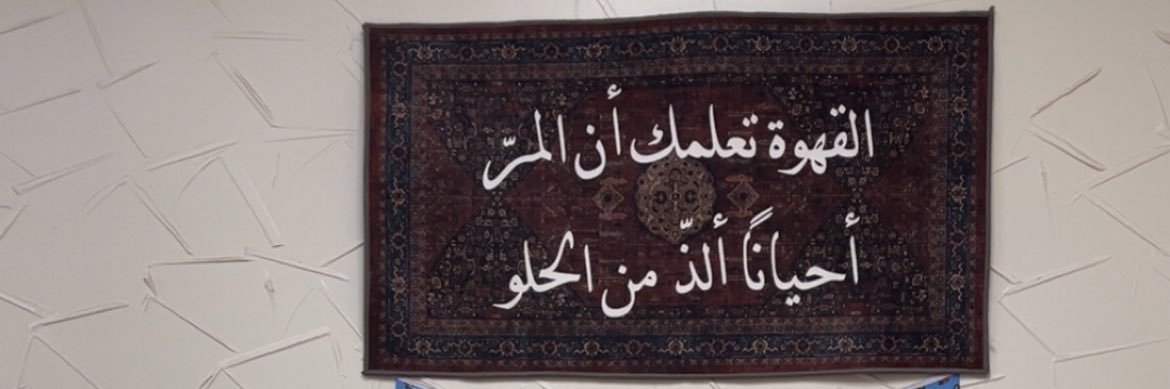 القهوة تعلمك أن المرّ
أحيانًا ألذّ من الحلو